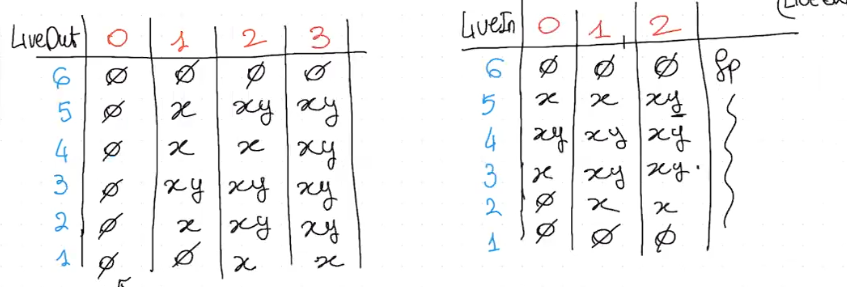 LiveOut 0 1 2 3
6 ∅ ∅ ∅ ∅
5 ∅ x xy xy
4 ∅ x x xy
3 ∅ xy xy xy
2 ∅ x xy xy
1 ∅ ∅ x x
LiveIn 0 1 2
6 ∅ ∅ ∅ fp
5 x x xy
4 xy xy xy
3 x xy xy
2 ∅ x x
1 ∅ ∅ ∅